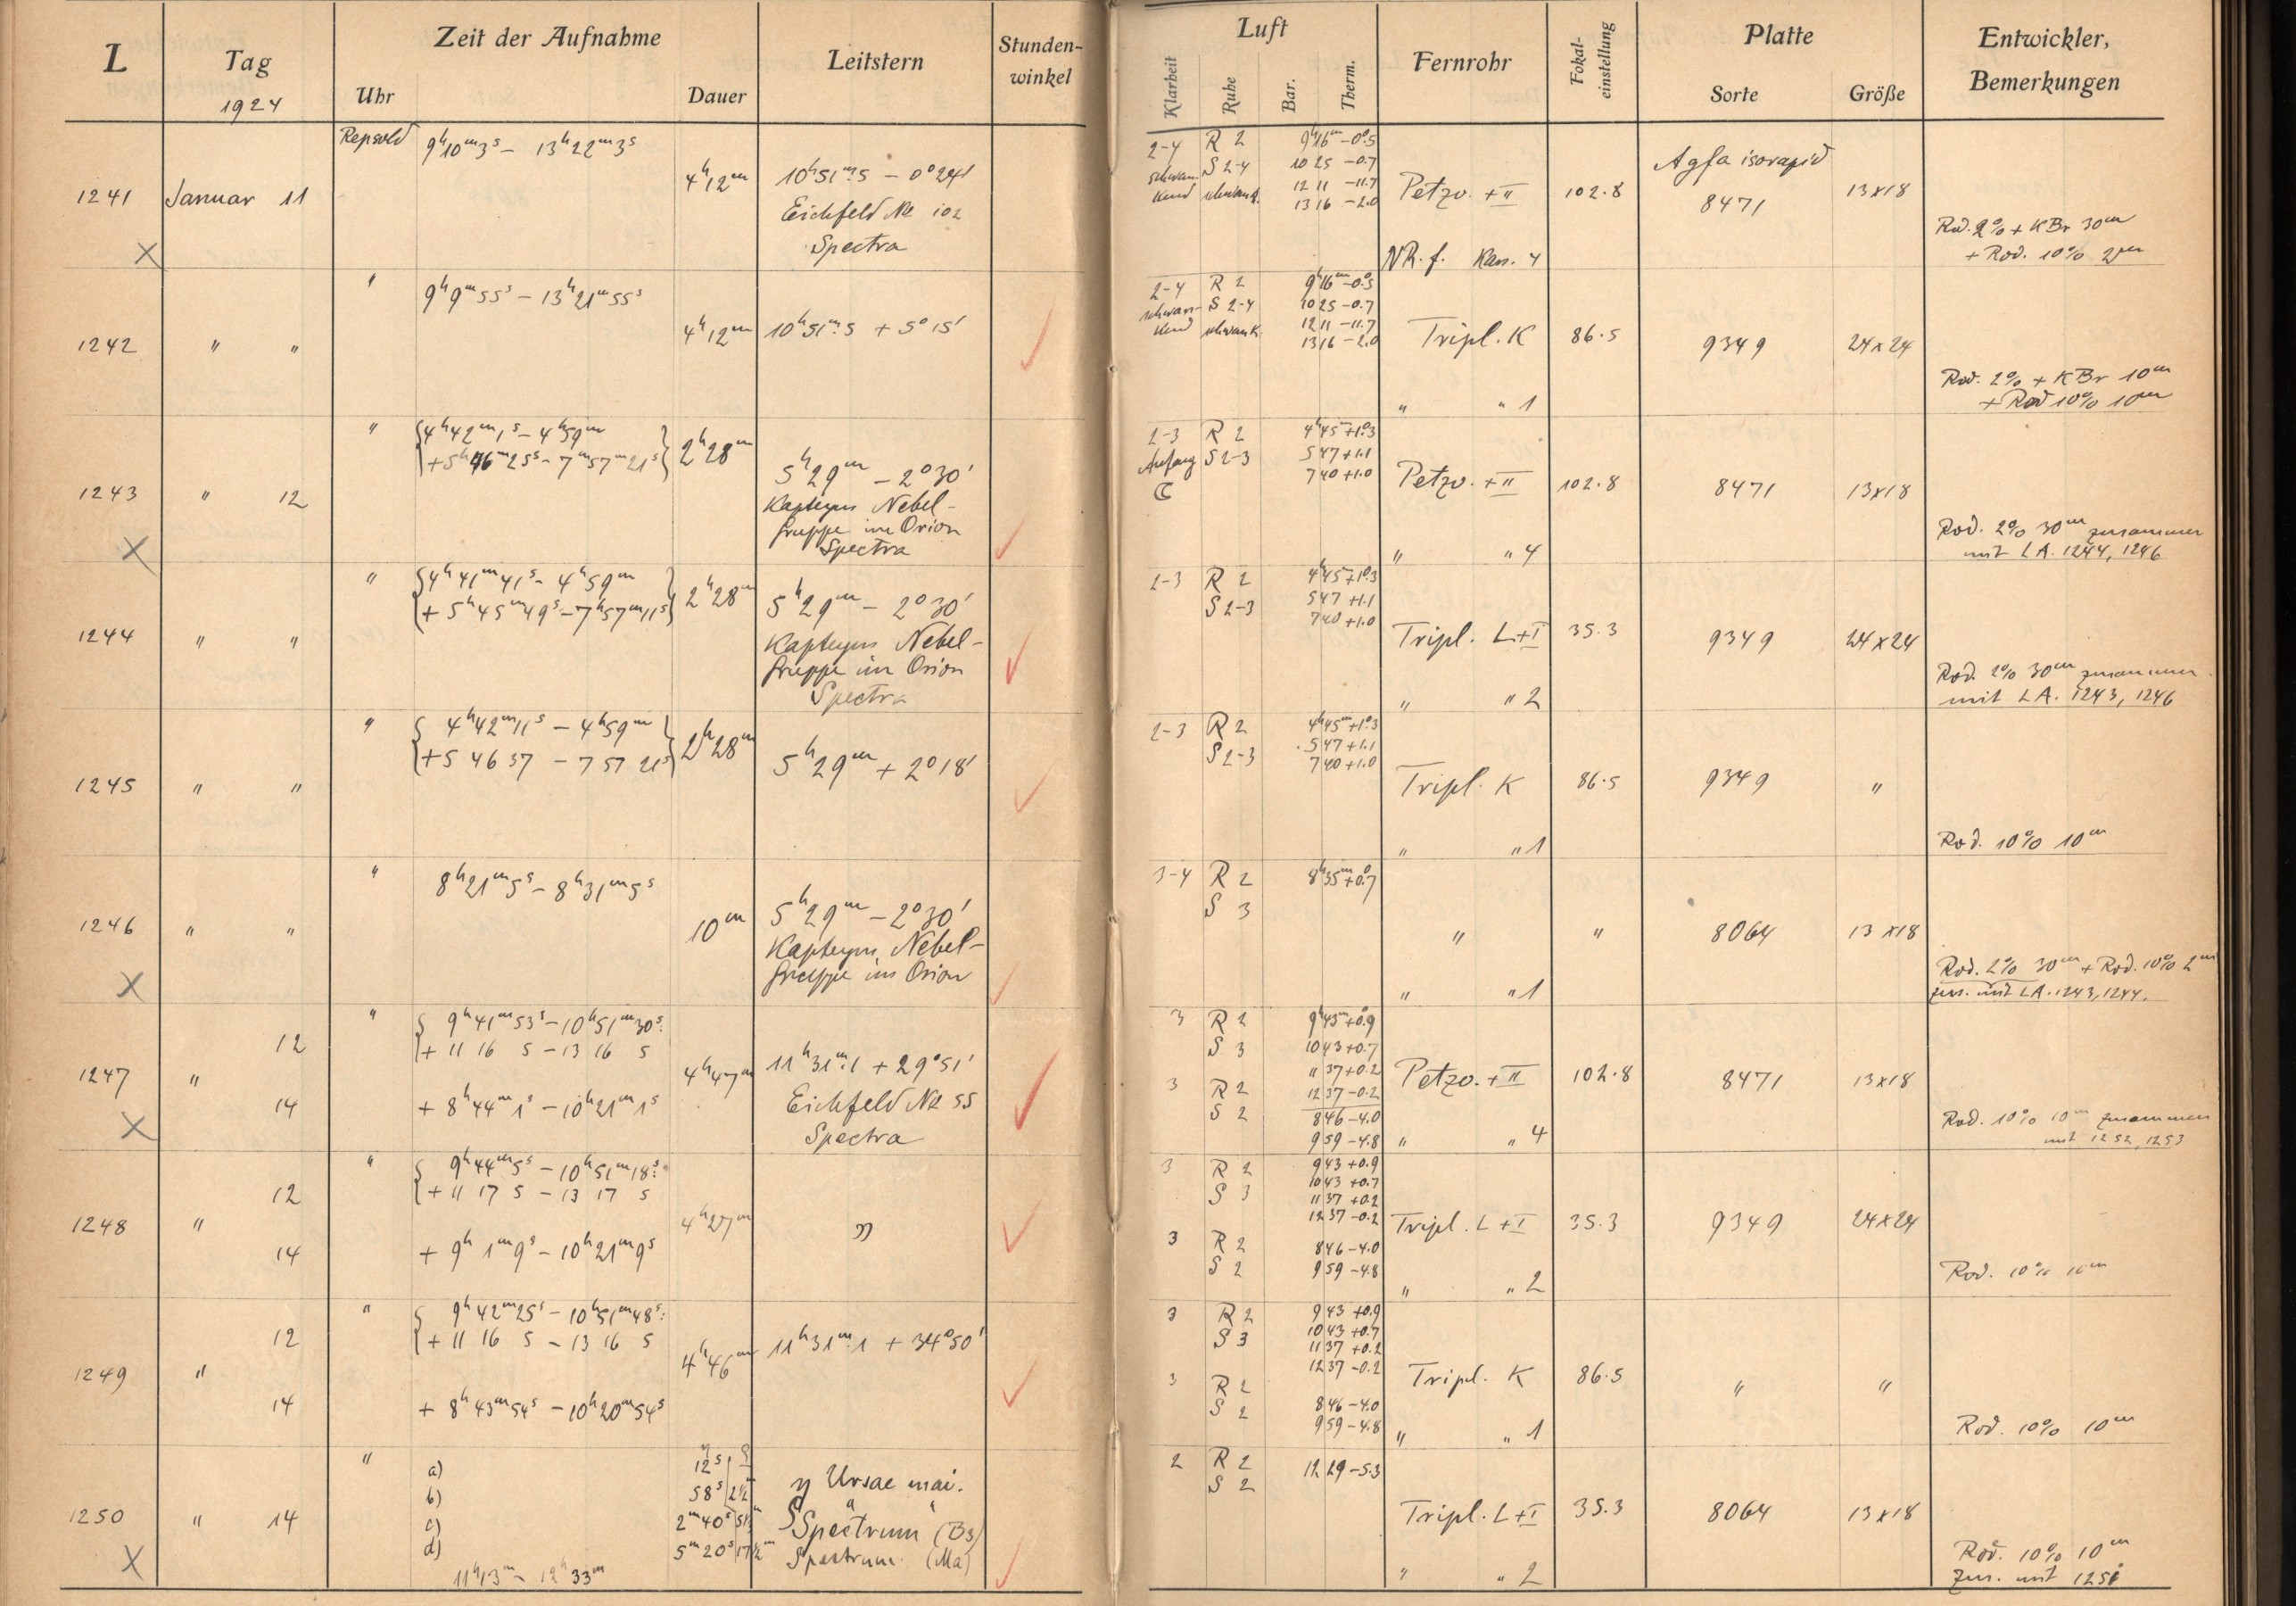 L
Tag
1924
Zeit der Aufnahme
Uhr
Dauer
Leitstern
Stunden-
winkel
Luft
Klarheit
Ruhe
Bar.
Therm.
Fernrohr
Fokal-
einstellung
Platte
Sorte
Größe
Entwickler,
Bemerkungen
1241
Januar 11
Repsold
9h10m3s – 13h22m3s
4h12m
10h51m.5 – 0°24'
Eichfeld № 102
Spectra
2-4
schwan-
kend
R 2
S 2-4
schwank.
9h16m –0°.5
10 25 –0.7
12 11 –11.7
13 16 –2.0
Petzv. + II
NR. f. Kam. 4
102.8
Agfa isorapid
8471
13x18
Rod. 2% + KBr 30m
+ Rod. 10% 2m
1242
" "
"
9h9m55s – 13h21m55s
4h12m
10h51m.5 + 5°15'
2-4
schwan-
kend
R 2
S 2-4
schwank.
9h16m –0°.5
10 25 –0.7
12 11 –11.7
13 16 –2.0
Tripl. K
" " 1
86.5
9349
24x24
Rod. 2% + KBr 10m
+ Rod 10% 10m
1243
" 12
"
{4h42m1s – 4h59m
+5h46m25s – 7m57m21s}
2h28m
5h29m – 2°30'
Kapteyns Nebel-
gruppe im Orion
Spectra
2-3
Anfang
☾
R 2
S 2-3
4h45m+1°.3
5 47 +1.1
7 40 +1.0
Petzv. + II
" " 4
102.8
8471
13x18
Rod. 2% 30m zusammen
mit LA. 1244, 1246
1244
" "
"
{4h41m41s – 4h59m
+ 5h45m49s – 7h57m11s}
2h28m
5h29m – 2°30'
Kapteyns Nebel-
gruppe im Orion
Spectra
2-3
R 2
S 2-3
4h45m+1°.3
5 47 +1.1
7 40 +1.0
Tripl. L+I
" " 2
35.3
9349
24x24
Rod. 2% 30m zusammen
mit LA. 1243, 1246
1245
" "
"
{4h42m11s – 4h59m
+5 46 37 – 7 57 21s}
2h28m
5h29m + 2°18'
2-3
R 2
S 2-3
4h45m+1°.3
5 47 +1.1
7 40 +1.0
Tripl. K
" " 1
86.5
9349
"
Rod. 10% 10m
1246
" "
"
8h21m5s – 8h31m5s
10m
5h29m – 2°30'
Kapteyns Nebel-
gruppe im Orion
3-4
R 2
S 3
8h35m+0°.7
"
" " 1
"
8064
13x18
Rod. 2% 30m + Rod. 10% 2m
zus. mit LA. 1243, 1244.
1247
"
12
14
"
{9h41m53s – 10h51m30s:
+ 11 16 5 – 13 16 5
+ 8h44m1s – 10h21m1s
4h47m
11h31m.1 + 29°51'
Eichfeld № 55
Spectra
3
R 2
S 3
3
R 2
S 2
9h43m+0°.9
10 43 +0.7
11 37 +0.2
12 37 –0.2
8 46 –4.0
9 59 –4.8
Petzv. + II
" " 4
102.8
8471
13x18
Rod. 10% 10m zusammen
mit 1252, 1253
1248
"
12
14
"
{9h44m5s – 10h51m18s:
+ 11 17 5 – 13 17 5
+ 9h 1m9s – 10h21m9s
4h27m
"
3
R 2
S 3
3
R 2
S 2
9 43 +0.9
10 43 +0.7
11 37 +0.2
12 37 –0.2
8 46 –4.0
9 59 –4.8
Tripl. L + I
" " 2
35.3
9349
24x24
Rod. 10% 10m
1249
"
12
14
"
{9h42m25s – 10h51m48s:
+ 11 16 5 – 13 16 5
+ 8h43m54s – 10h20m54s
4h46m
11h31m.1 + 34°50'
3
R 2
S 3
3
R 2
S 2
9 43 +0.9
10 43 +0.7
11 37 +0.2
12 37 –0.2
8 46 –4.0
9 59 –4.8
Tripl. K
" " 1
86.5
"
"
Rod. 10% 10m
1250
" 14
"
a)
b)
c)
d)
11h13m – 12h33m
12s
58s 2½
2m40s
5m20s 17½m
η Ursae mai.
" "
Spectrum (B3)
Spectrum (Ma)
2
R 2
S 2
12 29 –5.3
Tripl. L+I
" " 2
35.3
8064
13x18
Rod. 10% 10m
zus. mit 1251